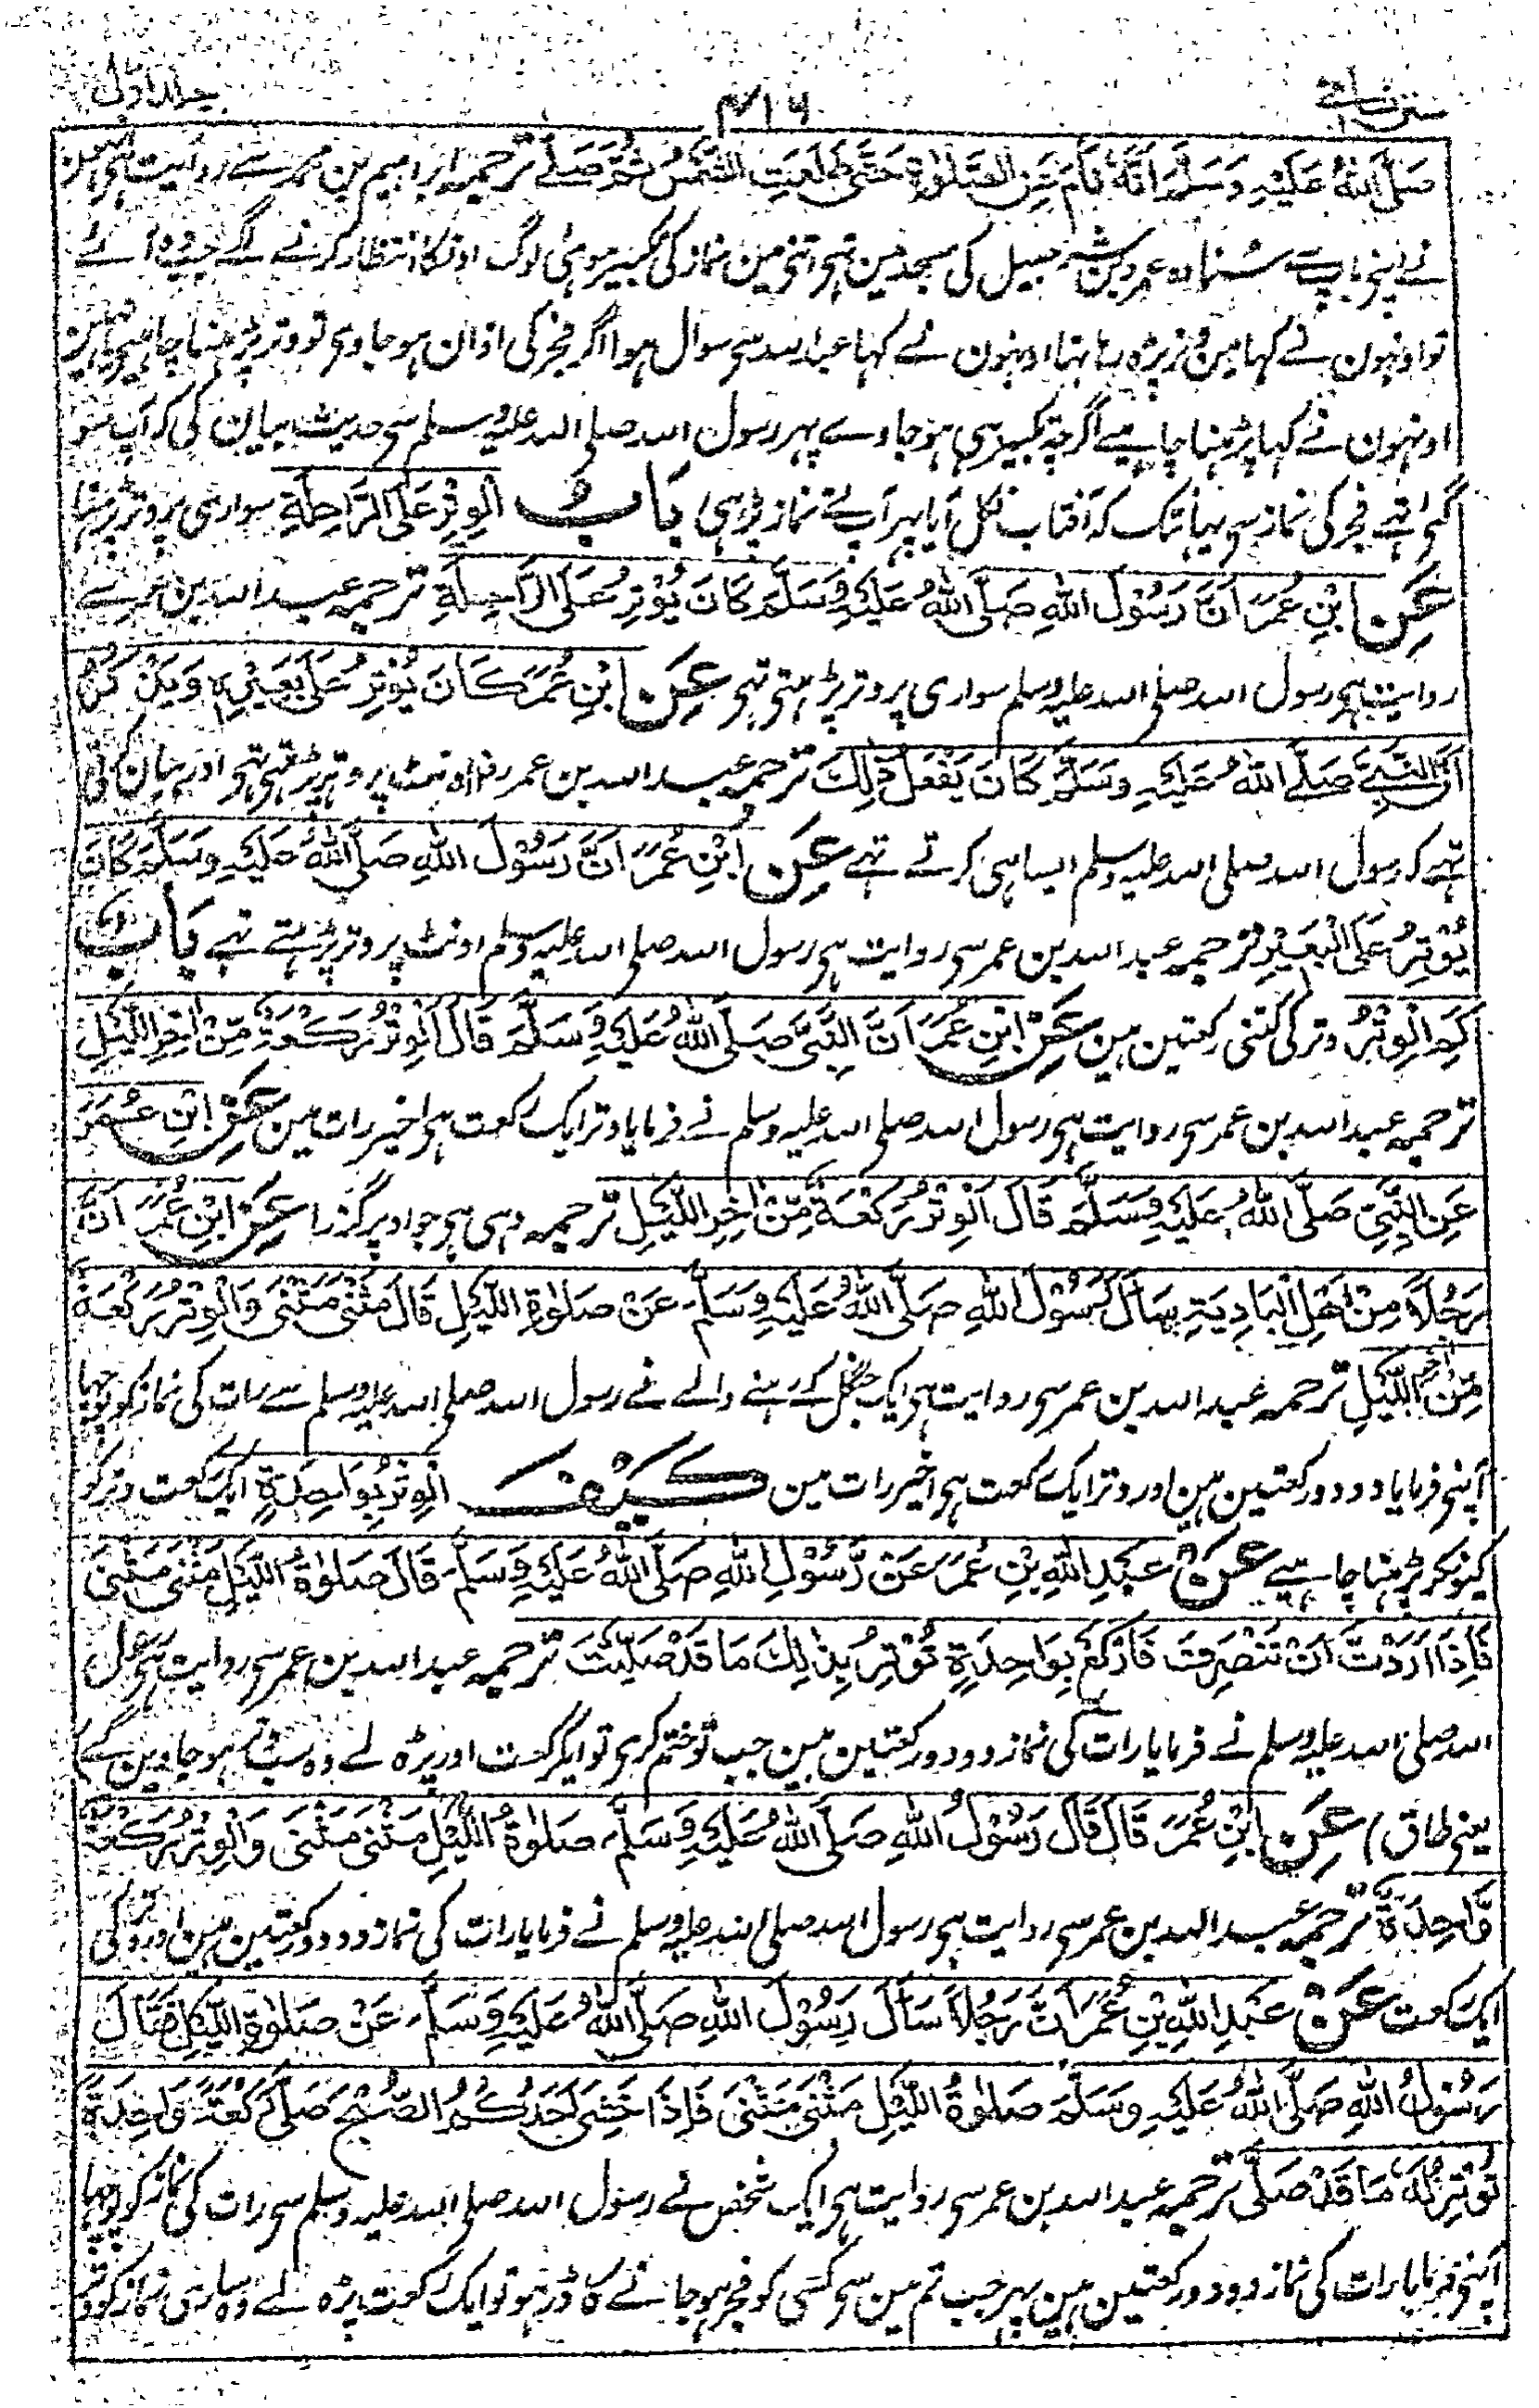 سنن نسائی ۴۱۶ جلد اول
صَلَّى اللهُ عَلَيْهِ وَسَلَّمَ اَنَّهُ نَامَ عَنِ الصَّلٰوةِ حَتّٰى طَلَعَتِ الشَّمْسُ ثُمَّ صَلّٰى ترجمہ ابراہیم بن محمد سے روایت ہی
نے اپنی باپ سے سنا وہ عمرو بن شرحبیل کی مسجد مین تہی اتنی مین نماز کی تکبیر ہوئی لوگ اونکا انتظار کرنے لگے جب وہ آئے
تو اونہون نے کہا مین وتر پڑہ رہا تہا اونہون نے کہا عبداللہ سی سوال ہوا اگر فجر کی اذان ہو جاوی تو وتر پڑہنا چاہیی یا نہین
اونہون نے کہا پڑہنا چاہیے اگرچہ تکبیر ہی ہو جاوے پہر رسول اللہ صلی اللہ علیہ وسلم سی حدیث بیان کی کہ آپ سو
گئی تہے فجر کی نماز سی یہانتک کہ آفتاب نکل آیا پہر آپ نے نماز پڑہی بَابُ الْوِتْرِ عَلَى الرَّاحِلَةِ سواری پر وتر پڑہنا
عَنِ ابْنِ عُمَرَ اَنَّ رَسُوْلَ اللهِ صَلَّى اللهُ عَلَيْهِ وَسَلَّمَ كَانَ يُوْتِرُ عَلَى الرَّاحِلَةِ ترجمہ عبداللہ بن عمر سے
روایت ہی رسول اللہ صلی اللہ علیہ وسلم سواری پر وتر پڑہتی تہی عَنِ ابْنِ عُمَرَ كَانَ يُوْتِرُ عَلَى بَعِيْرِهِ وَيَذْكُرُ
اَنَّ النَّبِيَّ صَلَّى اللهُ عَلَيْهِ وَسَلَّمَ كَانَ يَفْعَلُ ذٰلِكَ ترجمہ عبداللہ بن عمر رض اونٹ پر وتر پڑہتی تہی اور بیان کرتی
تہے کہ رسول اللہ صلی اللہ علیہ وسلم ایسا ہی کرتے تہے عَنِ ابْنِ عُمَرَ اَنَّ رَسُوْلَ اللهِ صَلَّى اللهُ عَلَيْهِ وَسَلَّمَ كَانَ
يُوْتِرُ عَلَى الْبَعِيْرِ ترجمہ عبداللہ بن عمر سی روایت ہی رسول اللہ صلی اللہ علیہ وسلم اونٹ پر وتر پڑہتے تہے بَابُ
كَمِ الْوِتْرُ وتر کی کتنی رکعتین ہین عَنِ ابْنِ عُمَرَ اَنَّ النَّبِيَّ صَلَّى اللهُ عَلَيْهِ وَسَلَّمَ قَالَ الْوِتْرُ رَكْعَةٌ مِّنْ اٰخِرِ اللَّيْلِ
ترجمہ عبداللہ بن عمر سی روایت ہی رسول اللہ صلی اللہ علیہ وسلم نے فرمایا وتر ایک رکعت ہی اخیر رات مین عَنِ ابْنِ عُمَرَ
عَنِ النَّبِيِّ صَلَّى اللهُ عَلَيْهِ وَسَلَّمَ قَالَ الْوِتْرُ رَكْعَةٌ مِّنْ اٰخِرِ اللَّيْلِ ترجمہ وہی ہی جو اوپر گذرا عَنِ ابْنِ عُمَرَ اَنَّ
رَجُلًا مِنْ اَهْلِ الْبَادِيَةِ سَاَلَ رَسُوْلَ اللهِ صَلَّى اللهُ عَلَيْهِ وَسَلَّمَ عَنْ صَلٰوةِ اللَّيْلِ قَالَ مَثْنٰى مَثْنٰى وَالْوِتْرُ رَكْعَةٌ
مِّنْ اٰخِرِ اللَّيْلِ ترجمہ عبداللہ بن عمر سی روایت ہی ایک جنگل کے رہنے والے نے رسول اللہ صلی اللہ علیہ وسلم سے رات کی نماز کو پوچہا
آپنی فرمایا دو دو رکعتین ہین اور وتر ایک رکعت ہی اخیر رات مین كَيْفَ الْوِتْرُ بِوَاحِدَةٍ ایک رکعت وتر کو
کیونکر پڑہنا چاہیے عَنْ عَبْدِ اللهِ بْنِ عُمَرَ عَنْ رَّسُوْلِ اللهِ صَلَّى اللهُ عَلَيْهِ وَسَلَّمَ قَالَ صَلٰوةُ اللَّيْلِ مَثْنٰى مَثْنٰى
فَاِذَا اَرَدْتَّ اَنْ تَنْصَرِفَ فَارْكَعْ بِوَاحِدَةٍ تُوْتِرُ بِذٰلِكَ مَا قَدْ صَلَّيْتَ ترجمہ عبداللہ بن عمر سی روایت ہی رسول
اللہ صلی اللہ علیہ وسلم نے فرمایا رات کی نماز دو دو رکعتین ہین جب تو ختم کری تو ایک رکعت اور پڑہ لے وہ سب وتر ہو جاوین گے
یعنی طاق) عَنِ ابْنِ عُمَرَ قَالَ قَالَ رَسُوْلُ اللهِ صَلَّى اللهُ عَلَيْهِ وَسَلَّمَ صَلٰوةُ اللَّيْلِ مَثْنٰى مَثْنٰى وَالْوِتْرُ رَكْعَةٌ
وَّاحِدَةٌ ترجمہ عبداللہ بن عمر سی روایت ہی رسول اللہ صلی اللہ علیہ وسلم نے فرمایا رات کی نماز دو دو رکعتین ہین اور وتر کی
ایک رکعت عَنْ عَبْدِ اللهِ بْنِ عُمَرَ اَنَّ رَجُلًا سَاَلَ رَسُوْلَ اللهِ صَلَّى اللهُ عَلَيْهِ وَسَلَّمَ عَنْ صَلٰوةِ اللَّيْلِ فَقَالَ
رَسُوْلُ اللهِ صَلَّى اللهُ عَلَيْهِ وَسَلَّمَ صَلٰوةُ اللَّيْلِ مَثْنٰى مَثْنٰى فَاِذَا خَشِيَ اَحَدُكُمُ الصُّبْحَ صَلّٰى رَكْعَةً وَّاحِدَةً
تُوْتِرُ لَهُ مَا قَدْ صَلّٰى ترجمہ عبداللہ بن عمر سی روایت ہی ایک شخص نے رسول اللہ صلی اللہ علیہ وسلم سی رات کی نماز کو پوچہا
آپنی فرمایا رات کی نماز دو دو رکعتین ہین پہر جب تم مین سی کسی کو فجر ہو جانے کا ڈر ہو تو ایک رکعت پڑہ لے وہ ساری نماز کو وتر